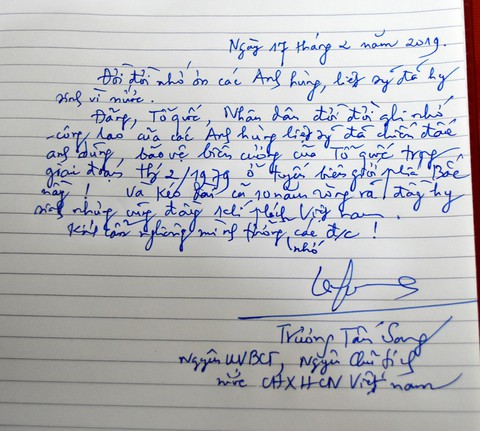 Ngày 17 tháng 2 năm 2019.
Đời đời nhớ ơn các Anh hùng, liệt sỹ đã hy
sinh vì nước.
Đảng, Tổ quốc, Nhân dân đời đời ghi nhớ
công lao của các Anh hùng liệt sỹ đã chiến đấu
anh dũng, bảo vệ biên cương của Tổ quốc trong
giai đoạn th 2/1979 ở tuyến biên giới phía Bắc
này! Và kéo dài cả 10 năm ròng rã đầy hy
sinh nhưng cũng đầy Việt nam.
Kính cẩn nghiêng mình tưởng nhớ các đ/c!
Trương Tấn Sang
Nguyên UVBCT, Nguyên Chủ tịch
nước CHXHCN Việt nam